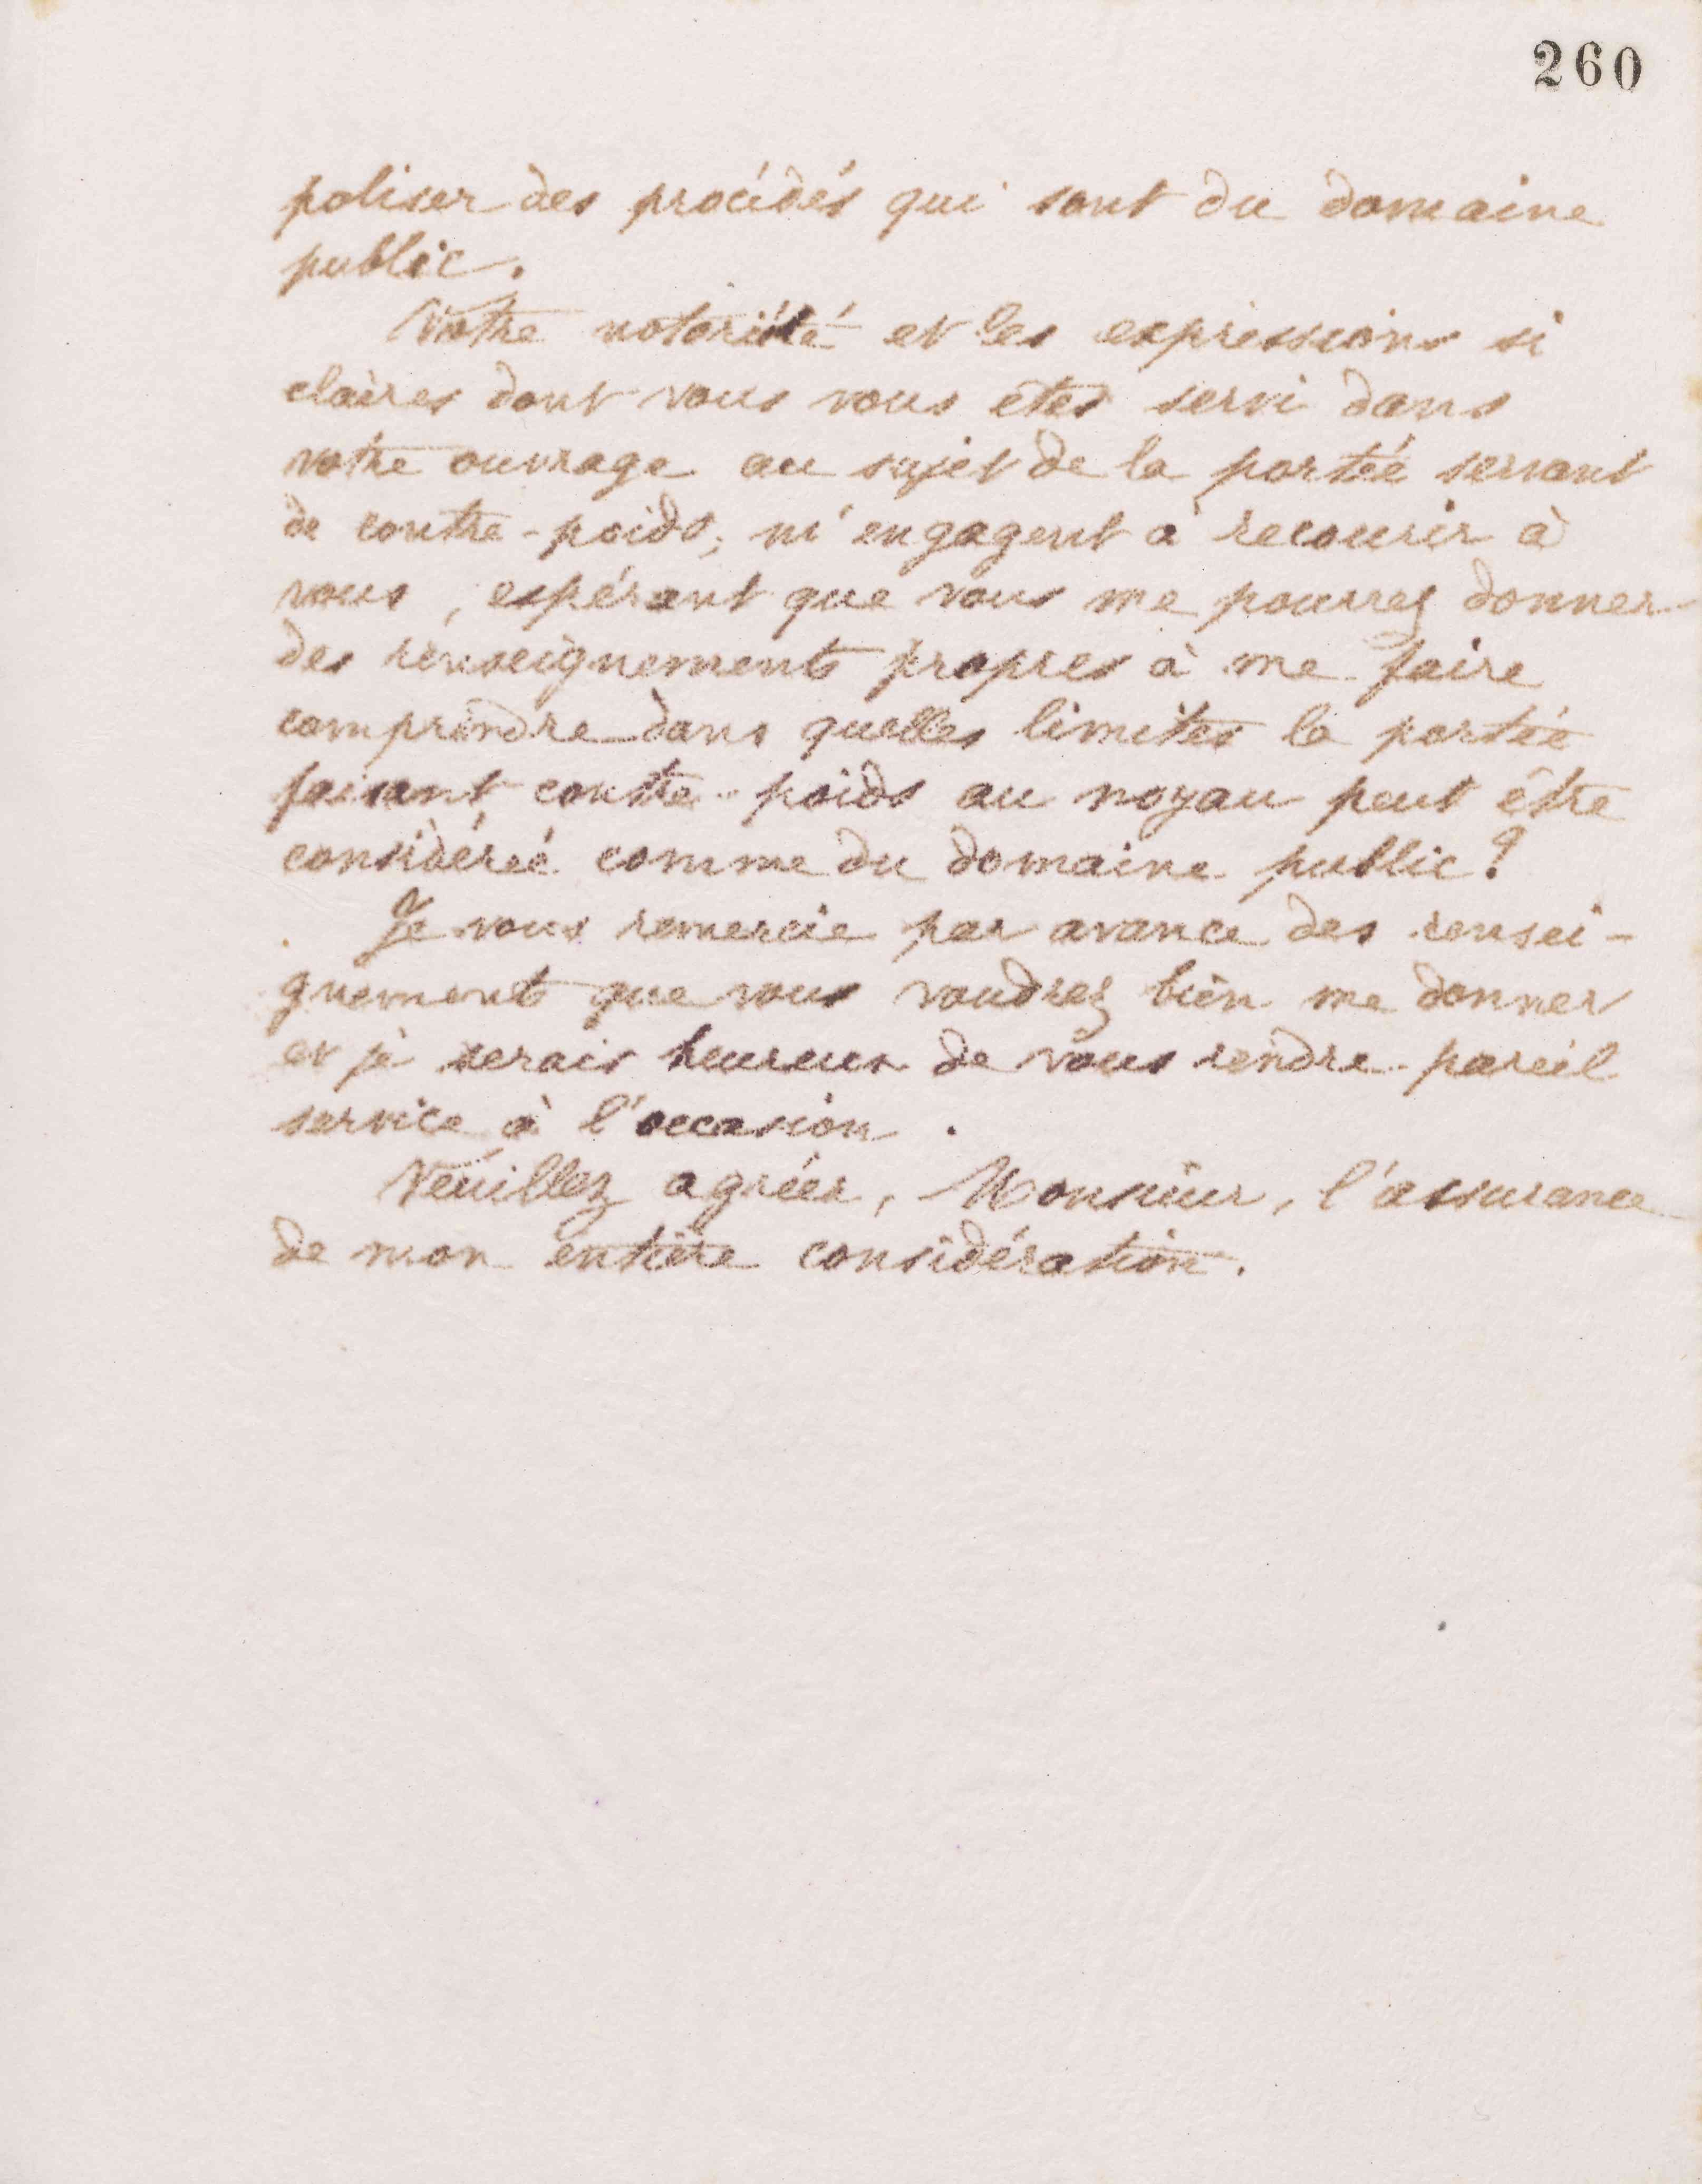 260
poliser des procédés qui sont du domaine
public.
Votre notoriété et les expressions si
claires dont vous vous êtes servi dans
votre ouvrage au sujet de la portée servant
de contre-poids, m'engagent à recourir à
vous, espérant que vous me pourrez donner
des renseignements propres à me faire
comprendre dans quelles limites la portée
faisant contre-poids au noyau peut être
considérée comme du domaine public?
Je vous remercie par avance des rensei-
gnements que vous voudrez bien me donner
et je serais heureux de vous rendre pareil
service à l'occasion.
Veuillez agréer, Monsieur, l'assurance
de mon entière considération.